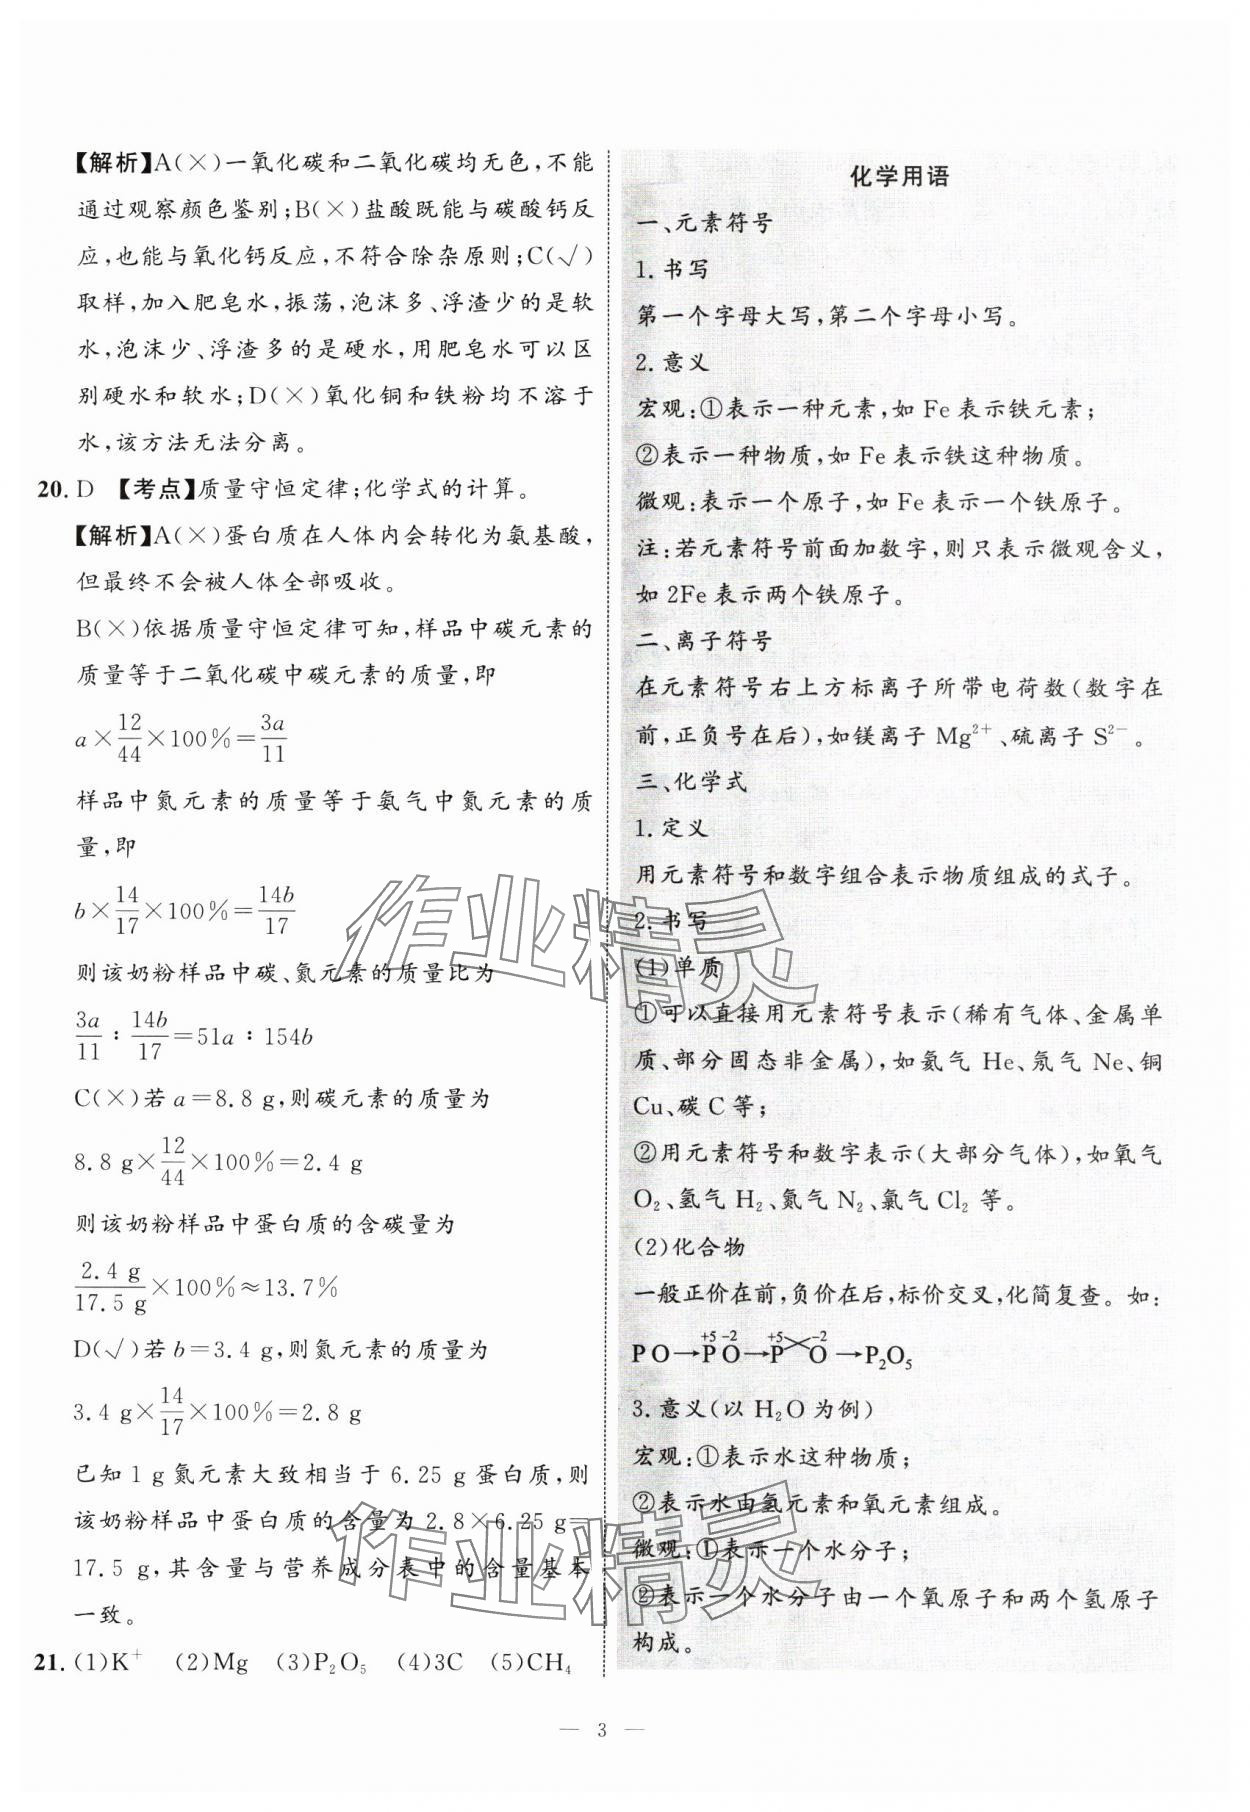 【解析】A(×)一氧化碳和二氧化碳均无色,不能
通过观察颜色鉴别;B(×)盐酸既能与碳酸钙反
应,也能与氧化钙反应,不符合除杂原则;C(√)
取样,加入肥皂水,振荡,泡沫多、浮渣少的是软
水,泡沫少、浮渣多的是硬水,用肥皂水可以区
别硬水和软水;D(×)氧化铜和铁粉均不溶于
水,该方法无法分离。
20. D 【考点】质量守恒定律;化学式的计算。
【解析】A(×)蛋白质在人体内会转化为氨基酸,
但最终不会被人体全部吸收。
B(×)依据质量守恒定律可知,样品中碳元素的
质量等于二氧化碳中碳元素的质量,即
a×12/44×100%=3a/11
样品中氮元素的质量等于氨气中氮元素的质
量,即
b×14/17×100%=14b/17
则该奶粉样品中碳、氮元素的质量比为
3a/11:14b/17=51a:154b
C(×)若a=8.8 g,则碳元素的质量为
8.8 g×12/44×100%=2.4 g
则该奶粉样品中蛋白质的含碳量为
2.4 g/17.5 g×100%≈13.7%
D(√)若b=3.4 g,则氮元素的质量为
3.4 g×14/17×100%=2.8 g
已知1 g氮元素大致相当于6.25 g蛋白质,则
该奶粉样品中蛋白质的含量为2.8×6.25 g=
17.5 g,其含量与营养成分表中的含量基本
一致。
21. (1)K⁺ (2)Mg (3)P₂O₅ (4)3C (5)CH₄
化学用语
一、元素符号
1. 书写
第一个字母大写,第二个字母小写。
2. 意义
宏观:①表示一种元素,如Fe表示铁元素;
②表示一种物质,如Fe表示铁这种物质。
微观:表示一个原子,如Fe表示一个铁原子。
注:若元素符号前面加数字,则只表示微观含义,
如2Fe表示两个铁原子。
二、离子符号
在元素符号右上方标离子所带电荷数(数字在
前,正负号在后),如镁离子Mg²⁺、硫离子S²⁻。
三、化学式
1. 定义
用元素符号和数字组合表示物质组成的式子。
2. 书写
(1)单质
①可以直接用元素符号表示(稀有气体、金属单
质、部分固态非金属),如氦气He、氖气Ne、铜
Cu、碳C等;
②用元素符号和数字表示(大部分气体),如氧气
O₂、氢气H₂、氮气N₂、氯气Cl₂等。
(2)化合物
一般正价在前,负价在后,标价交叉,化简复查。如:
+5 -2 +5 -2
P O→P O→P O→P₂O₅
3. 意义(以H₂O为例)
宏观:①表示水这种物质;
②表示水由氢元素和氧元素组成。
微观:①表示一个水分子;
②表示一个水分子由一个氧原子和两个氢原子
构成。
作业精灵
作业精灵
— 3 —